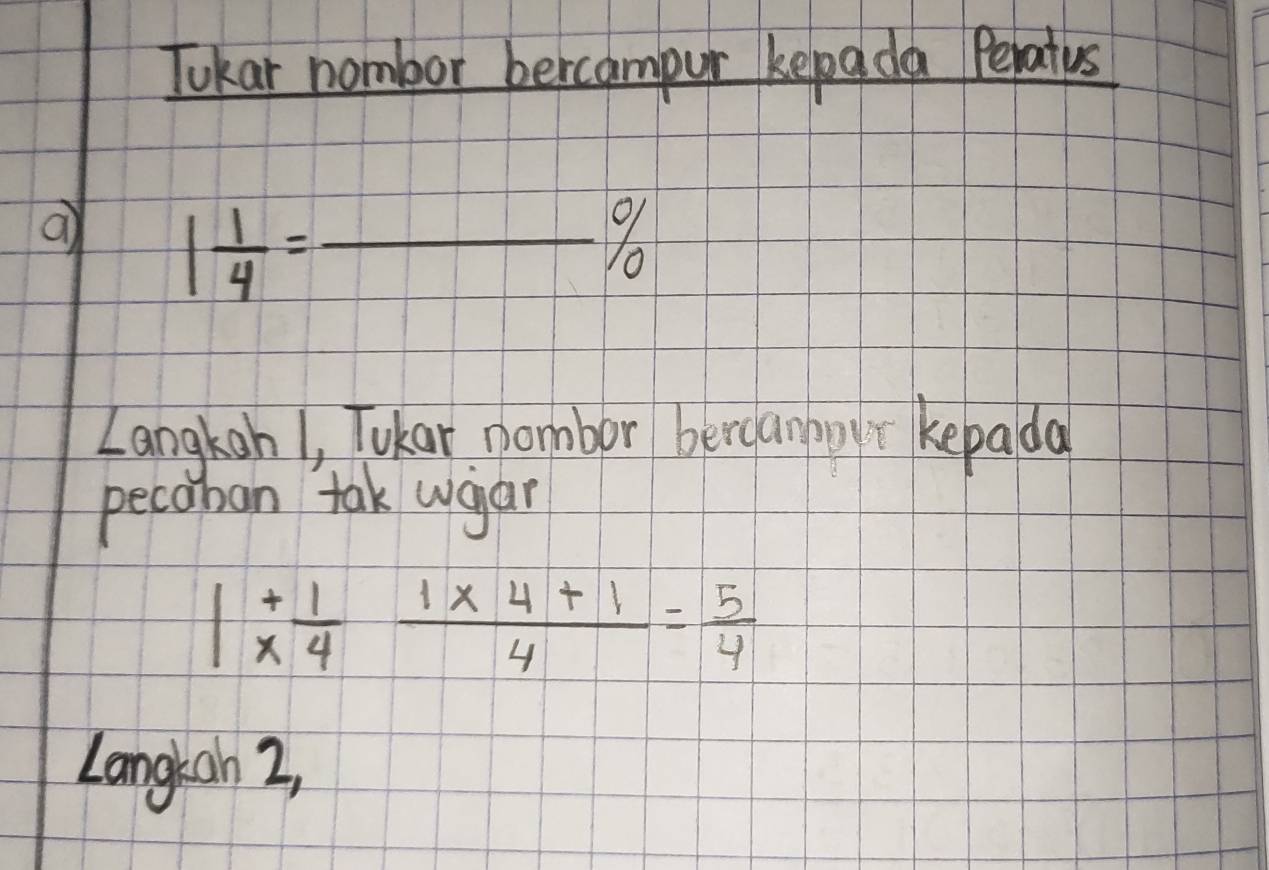 Tukar nombor bercampur kepada Peratus
a) 1 1/4 = ______ %
Langkah 1, Tukar nombor bercampur kepada
pecahan tak wajar
1 + x 1/4 (1 x 4 + 1)/4 = 5/4
Langkah 2,